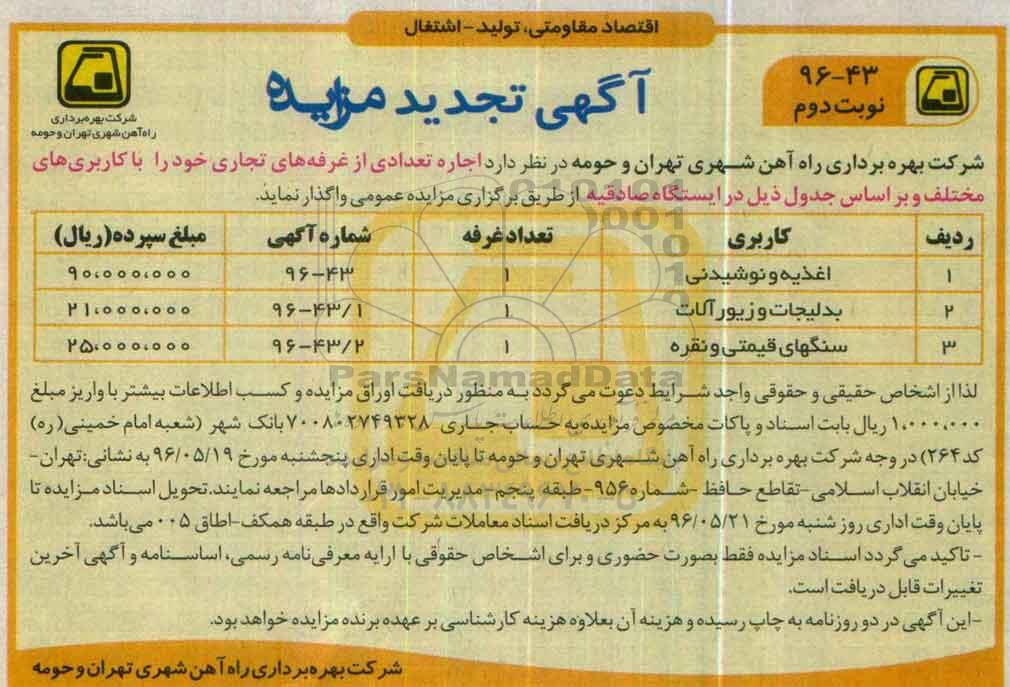 اقتصاد مقاومتی، تولید - اشتغال
۹۶-۴۳
نوبت دوم
آگهی تجدید مزایده
شرکت بهره‌برداری
راه‌آهن شهری تهران و حومه
شرکت بهره برداری راه آهن شهری تهران و حومه در نظر دارد اجاره تعدادی از غرفه‌های تجاری خود را با کاربری‌های
مختلف و بر اساس جدول ذیل در ایستگاه صادقیه از طریق برگزاری مزایده عمومی واگذار نماید.
ردیف کاربری تعداد غرفه شماره آگهی مبلغ سپرده (ریال)
۱ اغذیه و نوشیدنی ۱ ۹۶-۴۳ ۹۰،۰۰۰،۰۰۰
۲ بدلیجات و زیورآلات ۱ ۹۶-۴۳/۱ ۲۱،۰۰۰،۰۰۰
۳ سنگهای قیمتی و نقره ۱ ۹۶-۴۳/۲ ۲۵،۰۰۰،۰۰۰
ParsNamadData
لذا از اشخاص حقیقی و حقوقی واجد شرایط دعوت می گردد به منظور دریافت اوراق مزایده و کسب اطلاعات بیشتر با واریز مبلغ
۱،۰۰۰،۰۰۰ ریال بابت اسناد و پاکات مخصوص مزایده به حساب جاری ۷۰۰۸۰۲۷۴۹۳۲۸ بانک شهر (شعبه امام خمینی(ره)
کد ۲۶۴) در وجه شرکت بهره برداری راه آهن شهری تهران و حومه تا پایان وقت اداری پنجشنبه مورخ ۹۶/۰۵/۱۹ به نشانی: تهران-
خیابان انقلاب اسلامی-تقاطع حافظ -شماره ۹۵۶-طبقه پنجم - مدیریت امور قراردادها مراجعه نمایند. تحویل اسناد مزایده تا
پایان وقت اداری روز شنبه مورخ ۹۶/۰۵/۲۱ به مرکز دریافت اسناد معاملات شرکت واقع در طبقه همکف-اطاق ۰۰۵ می‌باشد.
- تاکید می گردد اسناد مزایده فقط بصورت حضوری و برای اشخاص حقوقی با ارایه معرفی نامه رسمی، اساسنامه و آگهی آخرین
تغییرات قابل دریافت است.
-این آگهی در دو روزنامه به چاپ رسیده و هزینه آن بعلاوه هزینه کارشناسی بر عهده برنده مزایده خواهد بود.
شرکت بهره‌برداری راه آهن شهری تهران و حومه